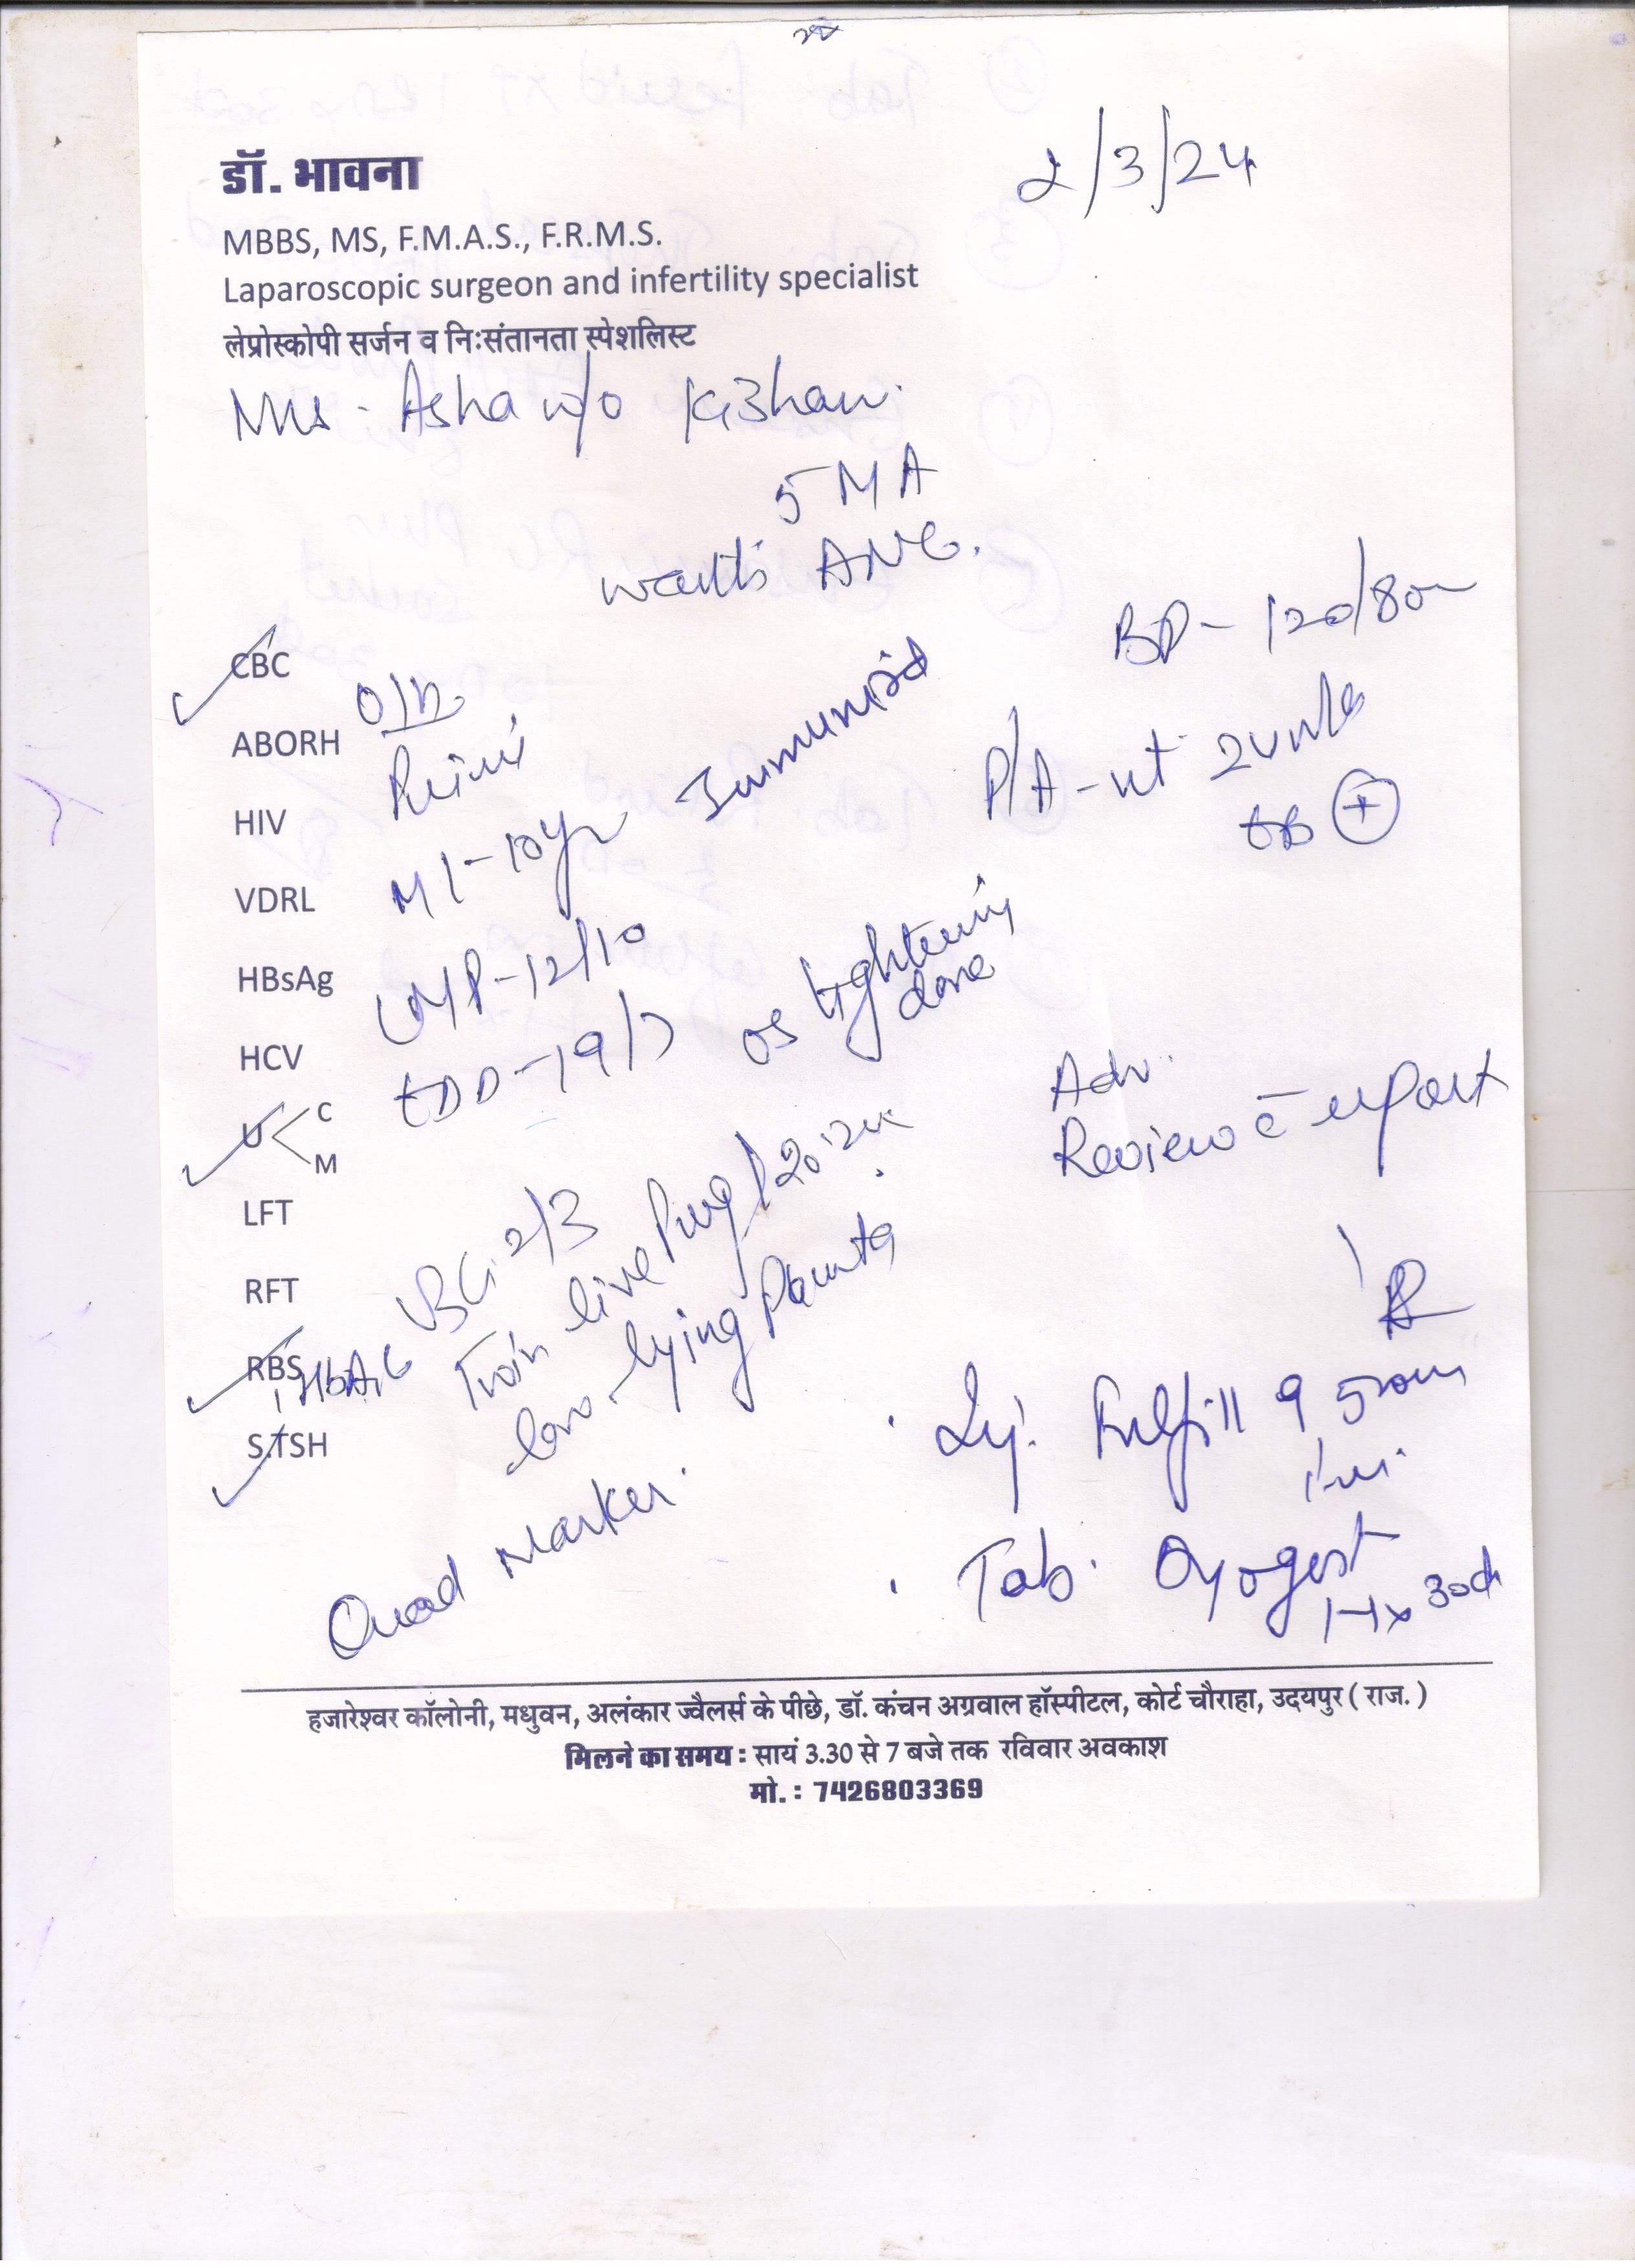 2/3/24
डॉ. भावना
MBBS, MS, F.M.A.S., F.R.M.S.
Laparoscopic surgeon and infertility specialist
लेप्रोस्कोपी सर्जन व निःसंतानता स्पेशलिस्ट
Mrs - Asha w/o Kishan.
5 MA
wants ANC.
BP - 120/80
P/A - ut 24 wks
⊕
CBC
ABORH
HIV
VDRL
HBsAg
HCV
U < C
M
LFT
RFT
RBS, HbA1c
S.TSH
O/H
Primi
Immunised
LMP - 12/10
EDD - 19/7
os tightening
done
Adv.
Review c̄ report
2/3
Twin live Preg / 20.2wk
low-lying Placenta
Quad Marker.
Inj. 500mg
Tab.
1-1 x 30d
हजारेश्वर कॉलोनी, मधुवन, अलंकार ज्वैलर्स के पीछे, डॉ. कंचन अग्रवाल हॉस्पीटल, कोर्ट चौराहा, उदयपुर ( राज. )
मिलने का समय : सायं 3.30 से 7 बजे तक रविवार अवकाश
मो. : 7426803369